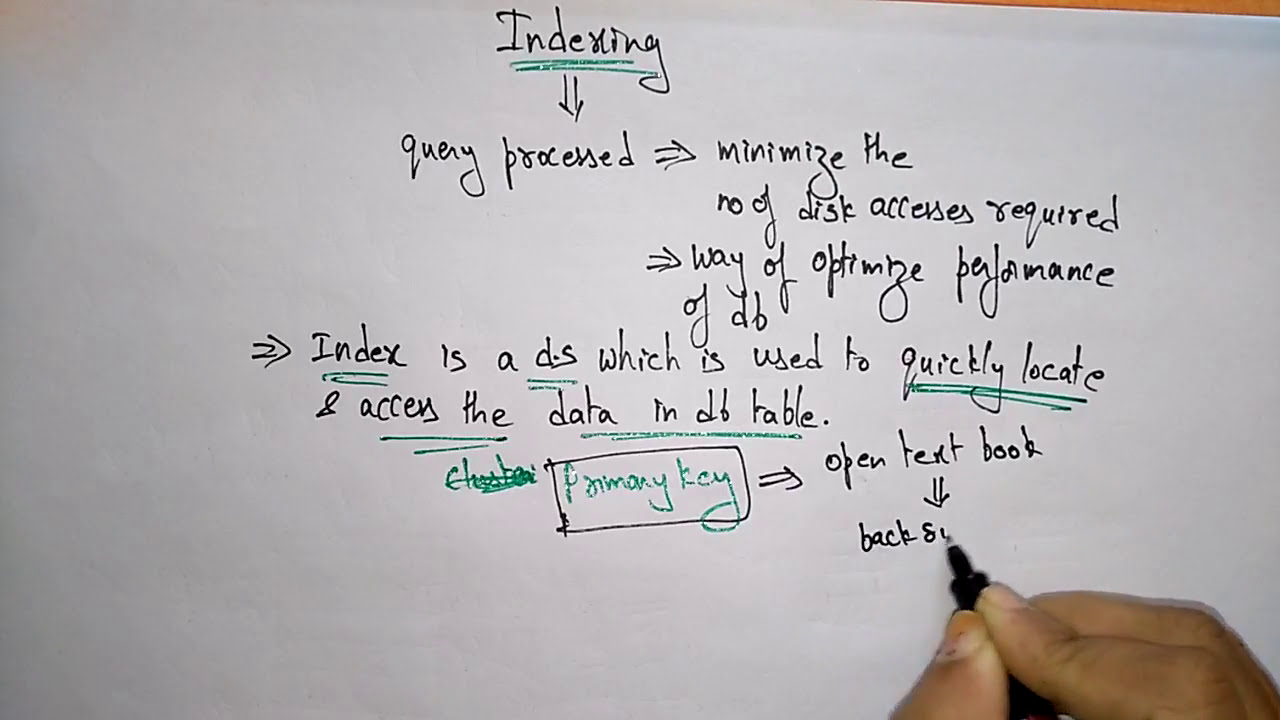 Indexing
⇓
query processed ⇒ minimize the
no of disk accesses required
⇒ way of optimize performance
of db
⇒ Index is a d.s which is used to quickly locate
& access the data in db table.
Primary key ⇒ open text book
⇓
back